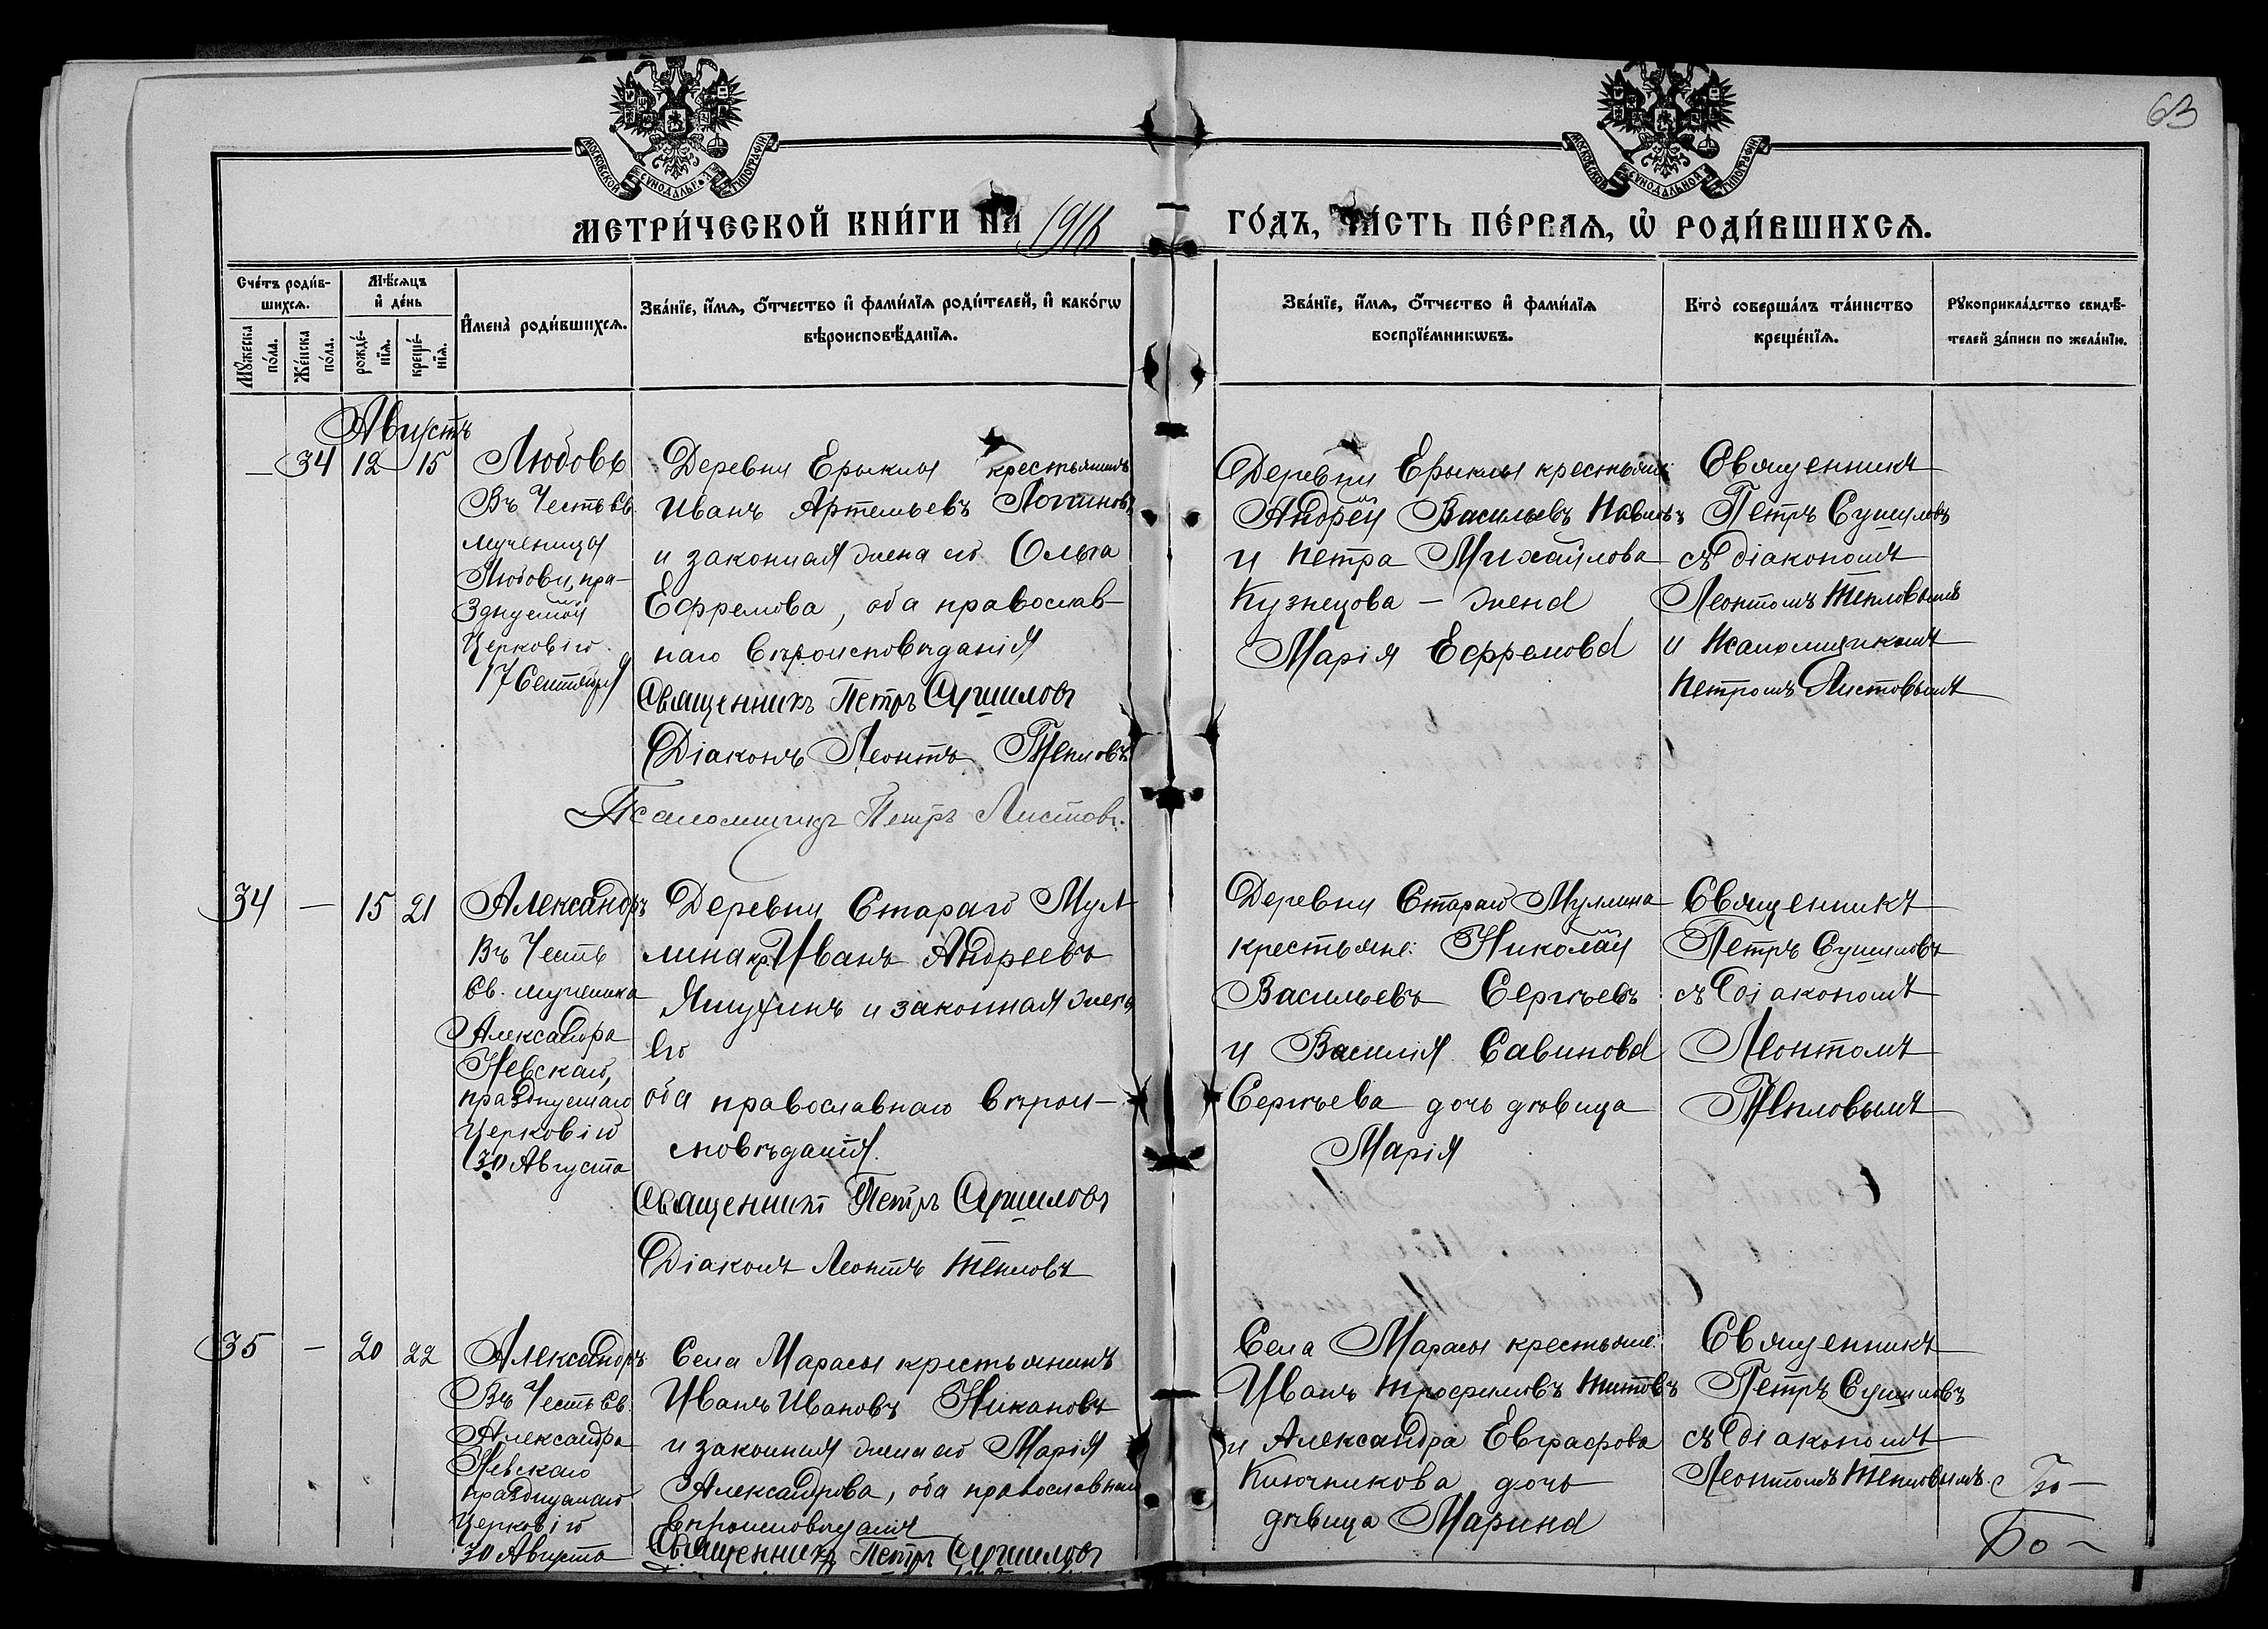 63
МОСКОВСКОЙ СѴНОДАЛЬНОЙ ТИПОГРАФІИ
МОСКОВСКОЙ СѴНОДАЛЬНОЙ ТИПОГРАФІИ
МЕТРИ́ЧЕСКОЙ КНИ́ГИ НА 1916
ГО́ДЪ, ЧА́СТЬ ПЕ́РВАѦ, Ѡ҆ РОДИ́ВШИХСѦ.
Сче́тъ роди́в-
шихсѧ.
Мꙋ́жеска по́ла.
Же́нска по́ла.
Мѣ́сѧцъ
и҆ де́нь
рожде́-нїѧ.
креще́-нїѧ.
И҆мена̀ роди́вшихсѧ.
Зва́нїе, и҆́мѧ, ѻ҆́тчество и҆ фами́лїѧ роди́телей, и҆ како́гѡ
вѣроисповѣ́данїѧ.
Зва́нїе, и҆́мѧ, ѻ҆́тчество и҆ фами́лїѧ
воспрїе́мникѡвъ.
Кто̀ соверша́лъ та́инство
креще́нїѧ.
Рꙋкоприкла́дство свидѣ́-
телей за́писи по жела́нїю.
Августъ
— 34 12 15
Любовь
Въ Честь Св.
мученицы
Любови, пра-
зднуемой
Церковію
17 Сентября
Деревни Ерыклы крестьянинъ
Иванъ Артемьевъ Логиновъ
и законная жена его Ольга
Ефремова, оба православ-
наго вѣроисповѣданія
Священникъ Петръ Сушиловъ
Діаконъ Леонтъ Тепловъ
Псаломщикъ Петръ Листовъ.
Деревни Ерыклы крестьяне:
Андрей Васильевъ Павловъ
и Петра Михайлова
Кузнецова — жена
Марія Ефремова
Священникъ
Петръ Сушиловъ
съ діакономъ
Леонтомъ Тепловымъ
и Псаломщикомъ
Петромъ Листовымъ
34 — 15 21
Александръ
Въ Честь
Св. мученика
Александра
Невскаго,
празднуемаго
Церковію
30 Августа
Деревни Стараго Мул-
лина кр. Иванъ Андреевъ
и законная жена
его
оба православнаго вѣрои-
сповѣданія.
Священникъ Петръ Сушиловъ
Діаконъ Леонтъ Тепловъ
Деревни Стараго Муллина
крестьяне: Николай
Васильевъ Сергѣевъ
и Василія Савинова
Сергѣева дочь дѣвица
Марія
Священникъ
Петръ Сушиловъ
съ Діакономъ
Леонтомъ
Тепловымъ
35 — 20 22
Александръ
Въ Честь Св.
Александра
Невскаго
празднуемаго
Церковію
30 Августа
Села Марасы крестьянинъ
Иванъ Ивановъ Никановъ
и законная жена его Марія
Александрова, оба православнаго
вѣроисповѣданія
Священникъ Петръ Сушиловъ
Села Марасы крестьяне:
Иванъ Трофимовъ Титовъ
и Александра Евграфова
Ключникова дочь
дѣвица Марина
Священникъ
Петръ Сушиловъ
съ Діакономъ
Леонтомъ Тепловымъ.
Бо —